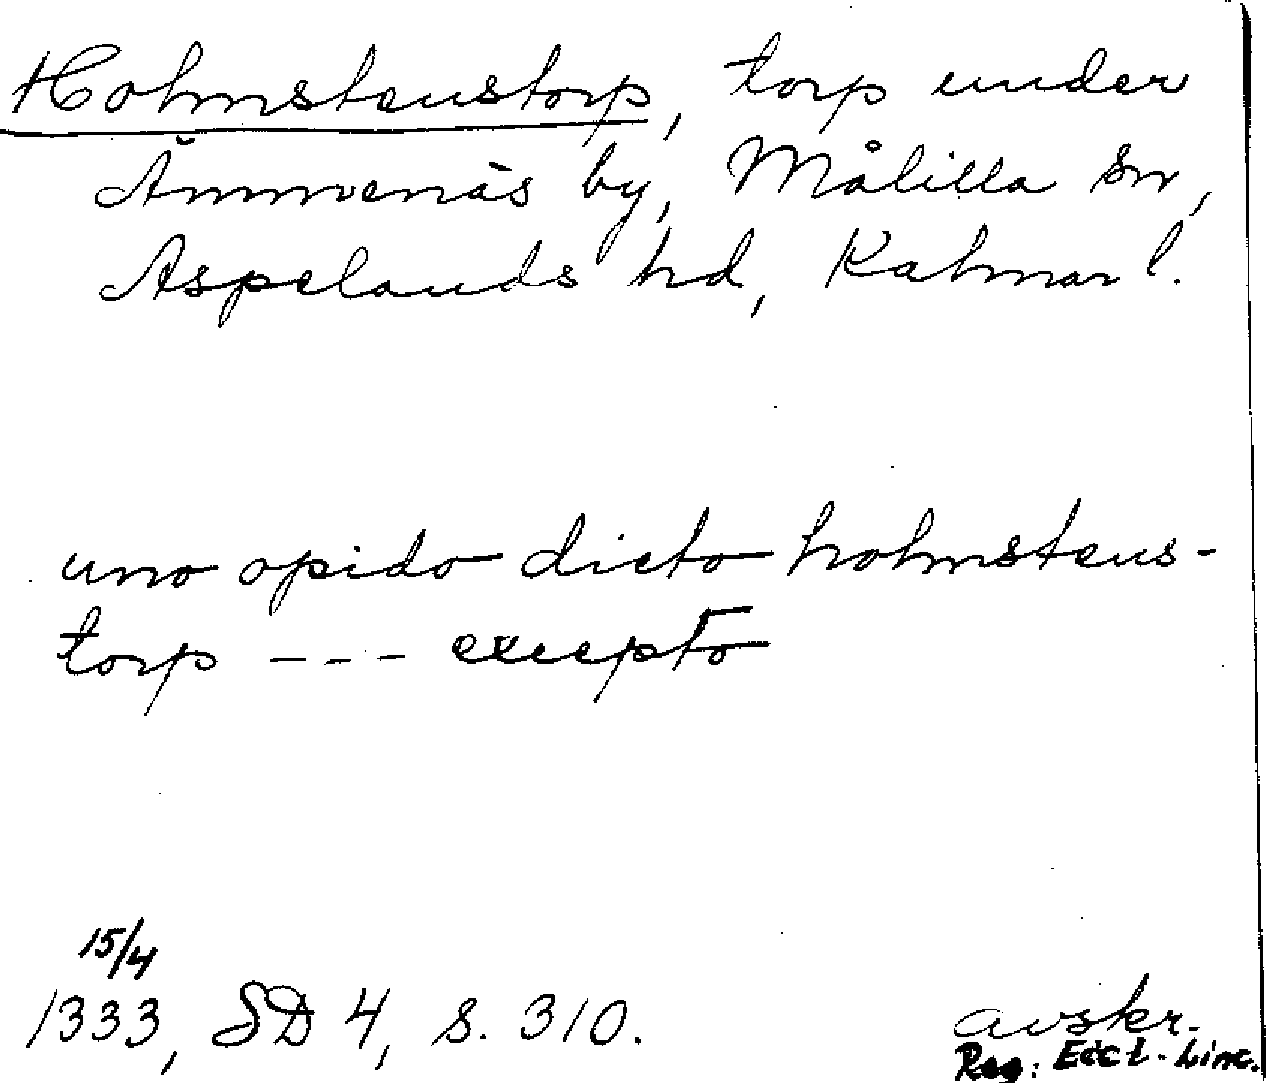 Holmstenstorp, torp under
Ämmenäs by, Målilla sn,
Aspelands hd, Kalmar l.
uno opido dicto holmstens-
torp --- excepto
15/4
1333, SD 4, s. 310.
avskr.
Reg: Eccl. Linc.